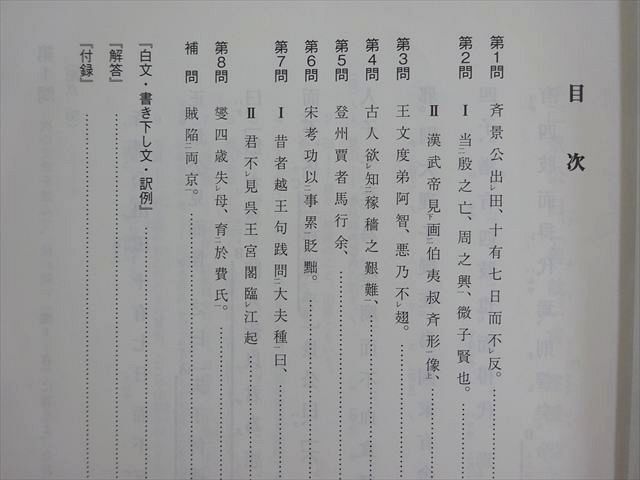 目次
第1問 斉景公出レ田、十有七日而不レ反。
第2問 Ⅰ 当二殷之亡、周之興、微子賢也。
Ⅱ 漢武帝見下画二伯夷叔斉形一像上、
第3問 王文度弟阿智、悪乃不レ翅。
第4問 古人欲レ知二稼穡之艱難一、
第5問 登州賈者馬行余、
第6問 宋考功以二事累一貶黜。
第7問 Ⅰ 昔者越王句践問二大夫種一曰、
Ⅱ 君不レ見呉王宮閣臨レ江起
第8問 燮四歳失レ母、育二於費氏一。
補問 賊陥二両京一。
『白文・書き下し文・訳例』
『解答』
『付録』